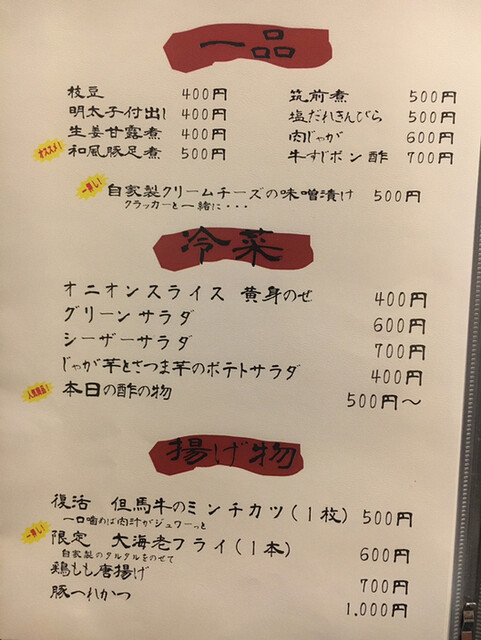 一品
枝豆 400円
明太子付出し 400円
生姜甘露煮 400円
オススメ! 和風豚足煮 500円
筑前煮 500円
塩だれきんぴら 500円
肉じゃが 600円
牛すじポン酢 700円
一押し! 自家製クリームチーズの味噌漬け 500円
クラッカーと一緒に・・・
冷菜
オニオンスライス 黄身のせ 400円
グリーンサラダ 600円
シーザーサラダ 700円
じゃが芋とさつま芋のポテトサラダ 400円
本日の酢の物 500円〜
揚げ物
復活 但馬牛のミンチカツ(1枚) 500円
一口噛めば肉汁がジュワーっと
一押し! 限定 大海老フライ(1本) 600円
自家製のタルタルをのせて
鶏もも唐揚げ 700円
豚へれかつ 1.000円